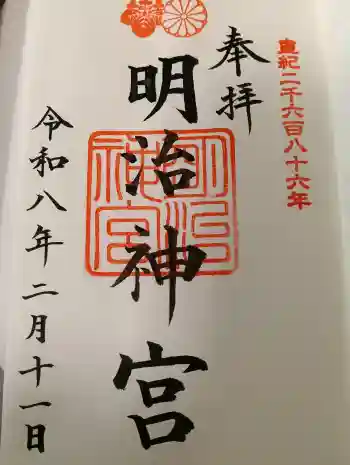 皇紀二千六百八十六年
奉拝
明治神宮
明治神宮
令和八年二月十一日